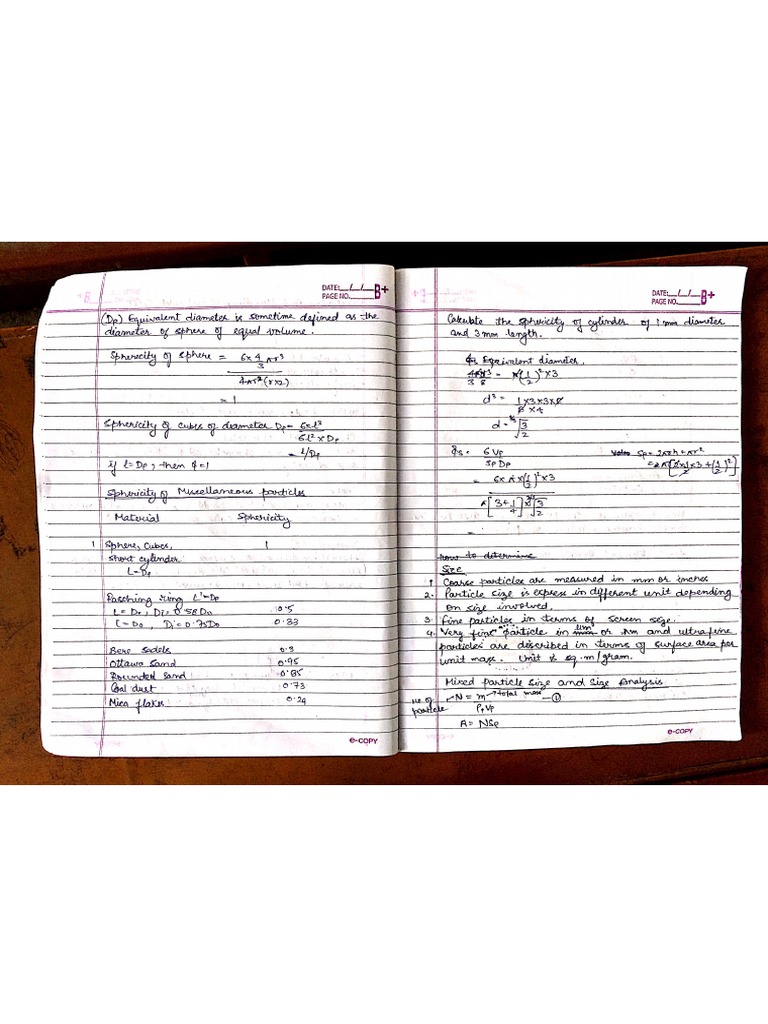 DATE:__/__/__ B+
PAGE NO.
(Dp) Equivalent diameter is sometime defined as the
diameter of sphere of equal volume.
Spherecity of sphere = 6 x 4/3 πr³
4πr²(rx2)
= 1
Sphericity of cubes of diameter Dp = 6xl³
6l² x Dp
= l/Dp
if l = Dp, then ϕ=1
Sphericity of Miscellaneous particles
Material Sphericity
1 Sphere, Cubes, 1
short cylinder
L = Dp
Rasching ring L = Do
L = Do, Di = 0.58Do 0.5
L = Do, Di = 0.75Do 0.33
Bere sadels 0.3
Ottawa Sand 0.95
Rounded Sand 0.85
Coal dust 0.73
Mica flakes 0.24
e-COPY
DATE:__/__/__ B+
PAGE NO.
Calculate the sphericity of cylinder of 1 mm diameter
and 3mm length.
Equivalent diameter.
= π(1/2)² x 3
d³ = 1x3x3x8
8x4
ϕs = 6 Vp Sp = 2πrh + πr²
Sp Dp
= 6 x π x (1/2)² x 3
how to determine
Size
1 Coarse particles are measured in mm or inches
2. Particle size is express in different unit depending
on size involved.
3. Fine particles in terms of screen size.
4. Very fine particle in or nm and ultrafine
particles are described in terms of surface area per
unit mass. Unit is sq.m/gram.
Mixed Particle size and size Analysis
no of particle N = m → total mass — ①
ρp Vp
A = NSp
e-COPY